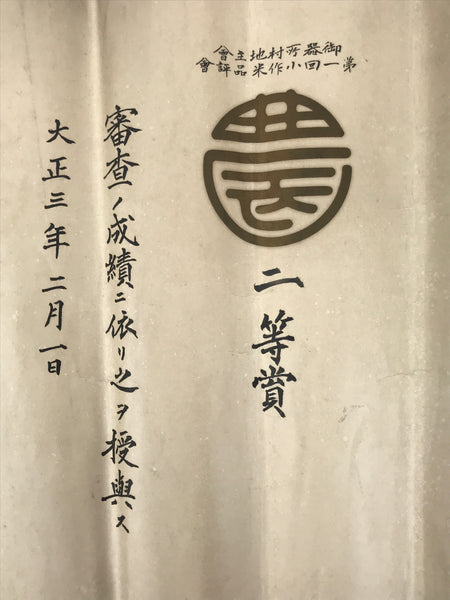 御器所村地主會
第一回小作米品評會
農
二等賞
審査ノ成績ニ依リ之ヲ授與ス
大正三年二月一日